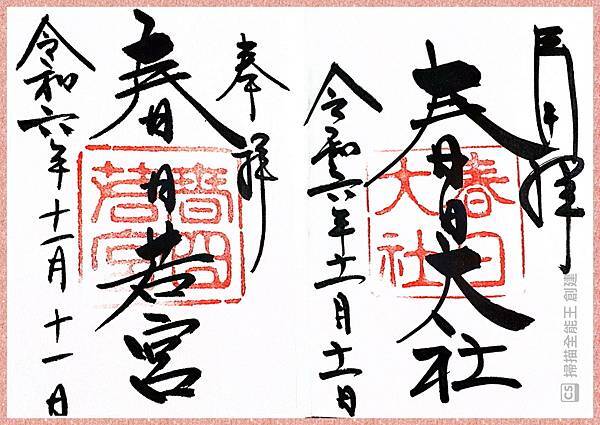 拝
春日大社
春日大社
令和六年十一月十一日
奉拝
春日若宮
春日若宮
令和六年十一月十一日
CS 掃描全能王 創建